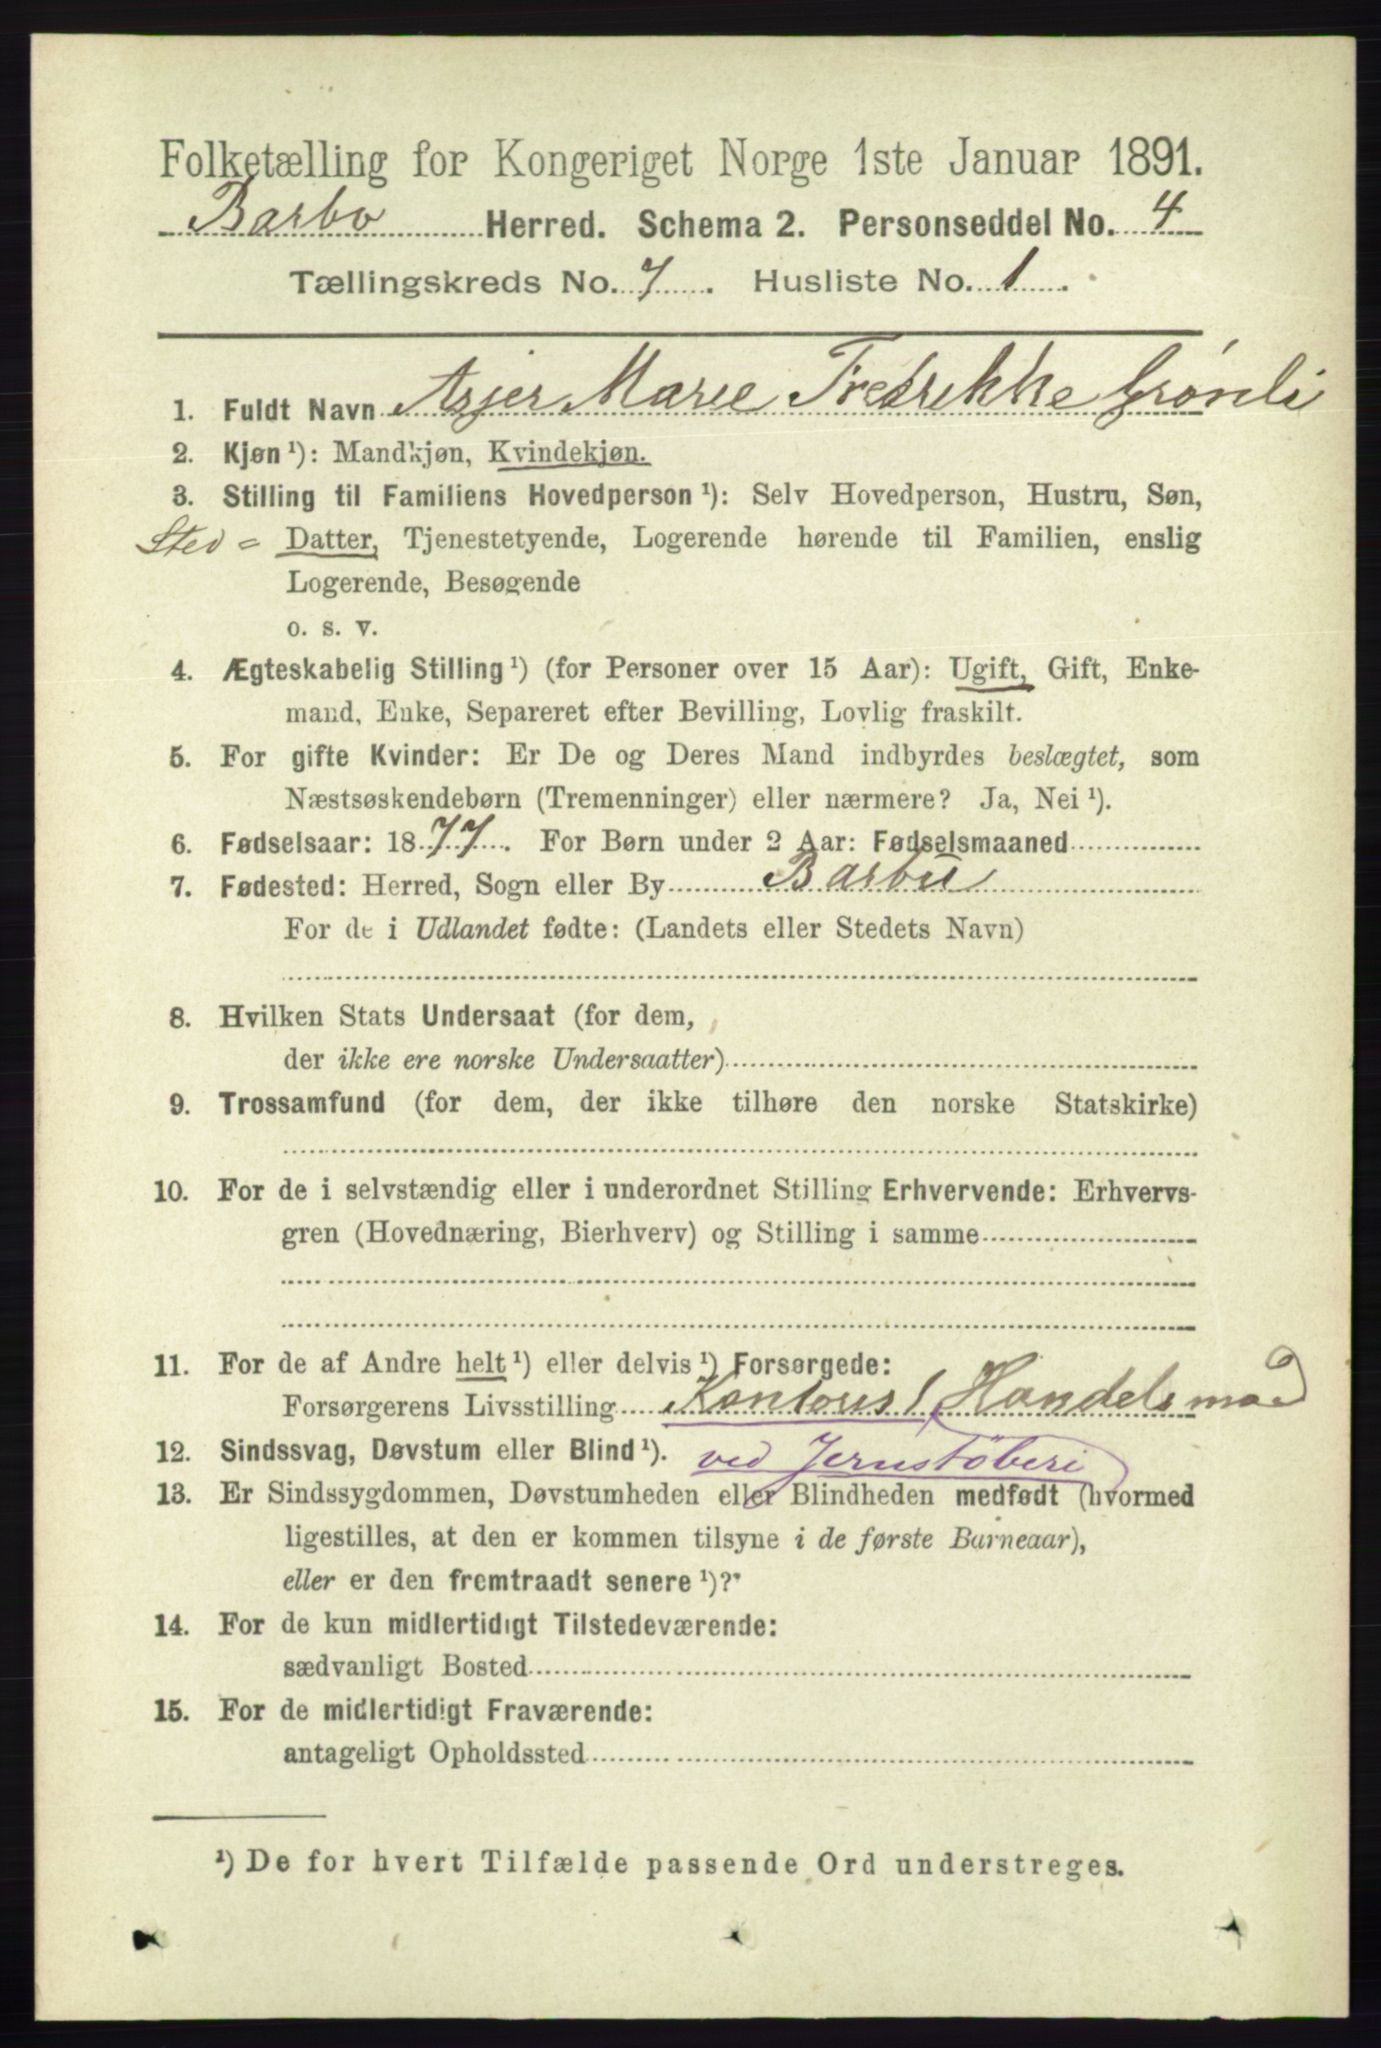 Folketælling for Kongeriget Norge 1ste Januar 1891.
Barbo Herred. Schema 2. Personseddel No. 4
Tællingskreds No. 7. Husliste No. 1.
1. Fuldt Navn Asjer Marie Fredrikke Grønli
2. Kjøn ¹): Mandkjøn, Kvindekjøn.
3. Stilling til Familiens Hovedperson ¹): Selv Hovedperson, Hustru, Søn,
Sted = Datter, Tjenestetyende, Logerende hørende til Familien, enslig
Logerende, Besøgende
o. s. v.
4. Ægteskabelig Stilling ¹) (for Personer over 15 Aar): Ugift, Gift, Enke-
mand, Enke, Separeret efter Bevilling, Lovlig fraskilt.
5. For gifte Kvinder: Er De og Deres Mand indbyrdes beslægtet, som
Næstsøskendebørn (Tremenninger) eller nærmere? Ja, Nei ¹).
6. Fødselsaar: 1877. For Børn under 2 Aar: Fødselsmaaned
7. Fødested: Herred, Sogn eller By Barbu
For de i Udlandet fødte: (Landets eller Stedets Navn)
8. Hvilken Stats Undersaat (for dem,
der ikke ere norske Undersaatter)
9. Trossamfund (for dem, der ikke tilhøre den norske Statskirke)
10. For de i selvstændig eller i underordnet Stilling Erhvervende: Erhvervs-
gren (Hovednæring, Bierhverv) og Stilling i samme
11. For de af Andre helt ¹) eller delvis ¹) Forsørgede:
Forsørgerens Livsstilling Kontorist Handelsmand
12. Sindssvag, Døvstum eller Blind ¹). ved Jernstøberi
13. Er Sindssygdommen, Døvstumheden eller Blindheden medfødt (hvormed
ligestilles, at den er kommen tilsyne i de første Barneaar),
eller er den fremtraadt senere ¹)?
14. For de kun midlertidigt Tilstedeværende:
sædvanligt Bosted
15. For de midlertidigt Fraværende:
antageligt Opholdssted
¹) De for hvert Tilfælde passende Ord understreges.